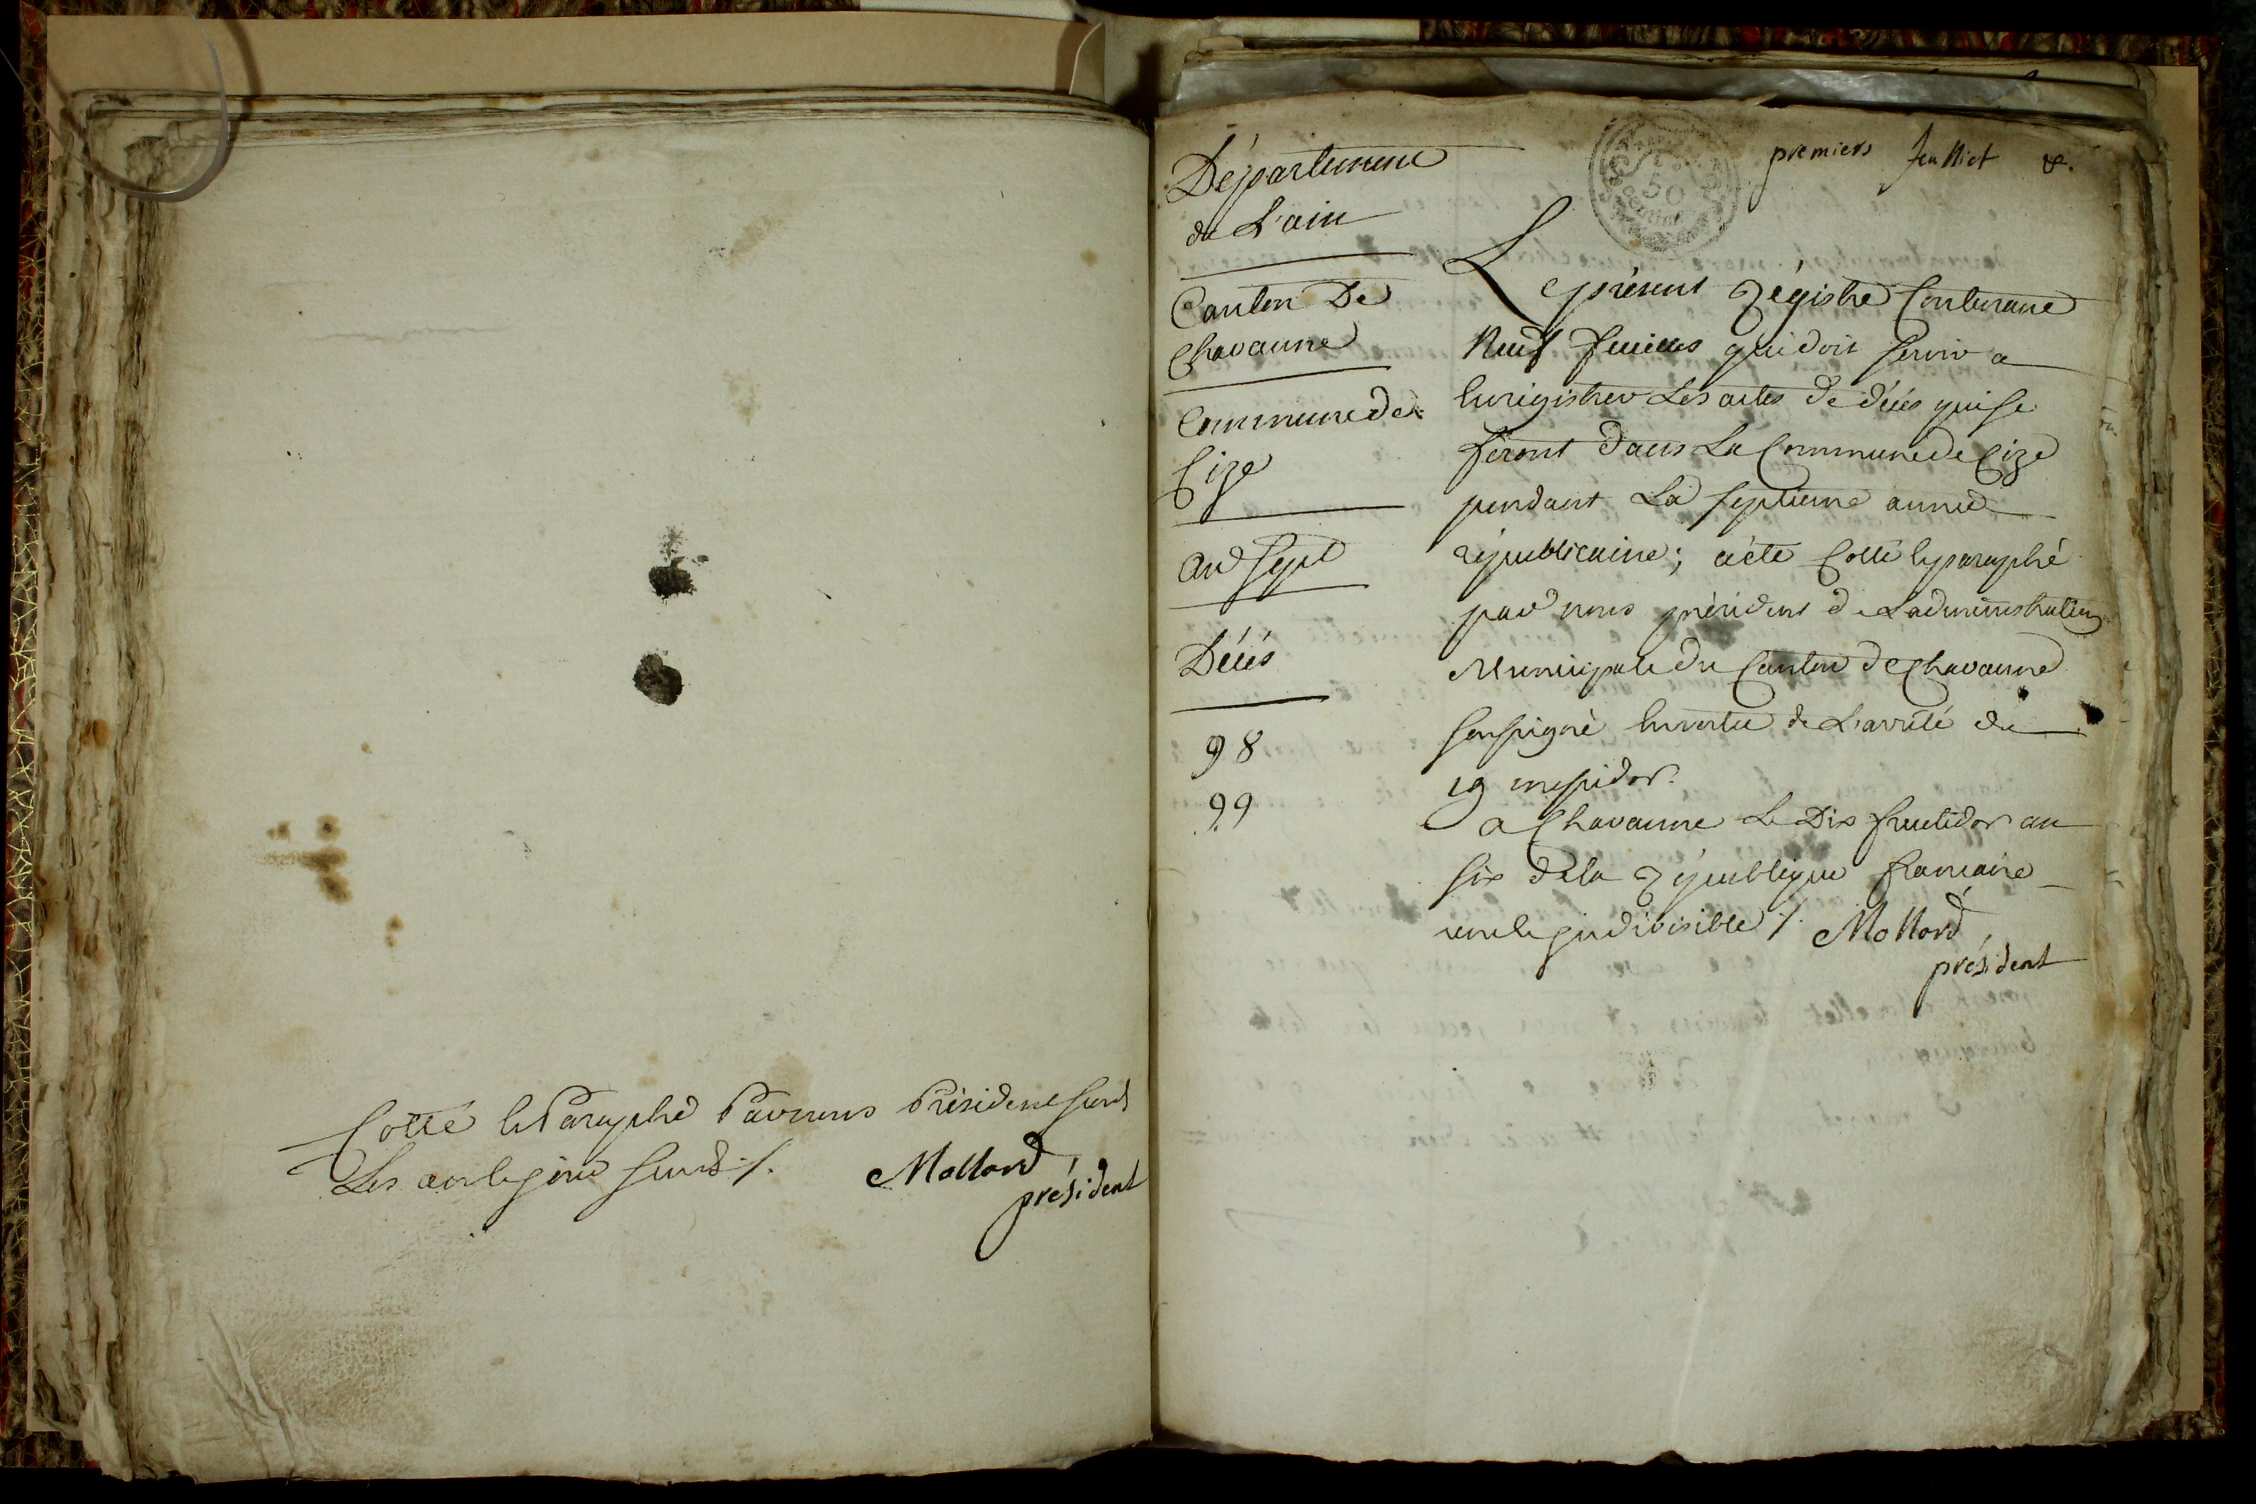 Cotté et Paraphé Par nous Président sous
Les an et jour susd. /.
Mollard
président
Département
de L'ain
Canton De
Chavanne
Commune de
Cize
An Sept
Décés
98
99
premiers feulliet &.
50
Le présent régistre Contenant
Neuf feuilles qui doit servir a
Enrigistrer Les actes de décés qui se
feront dans La Commune de Cize
pendant La septieme année
républicaine; a été Cotté et paraphé
par nous président de L'administration
Municipale du Canton de Chavanne
soussigné En vertu de L'arrêté du
19 messidor.
a Chavanne Le Dix fructidor an
six de la république francaise
une et indivisible /. Mollard
président